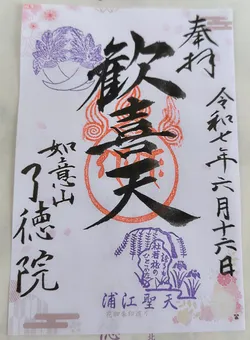 奉拝
令和七年六月十六日
歓喜天
如意山
了徳院
浦江聖天